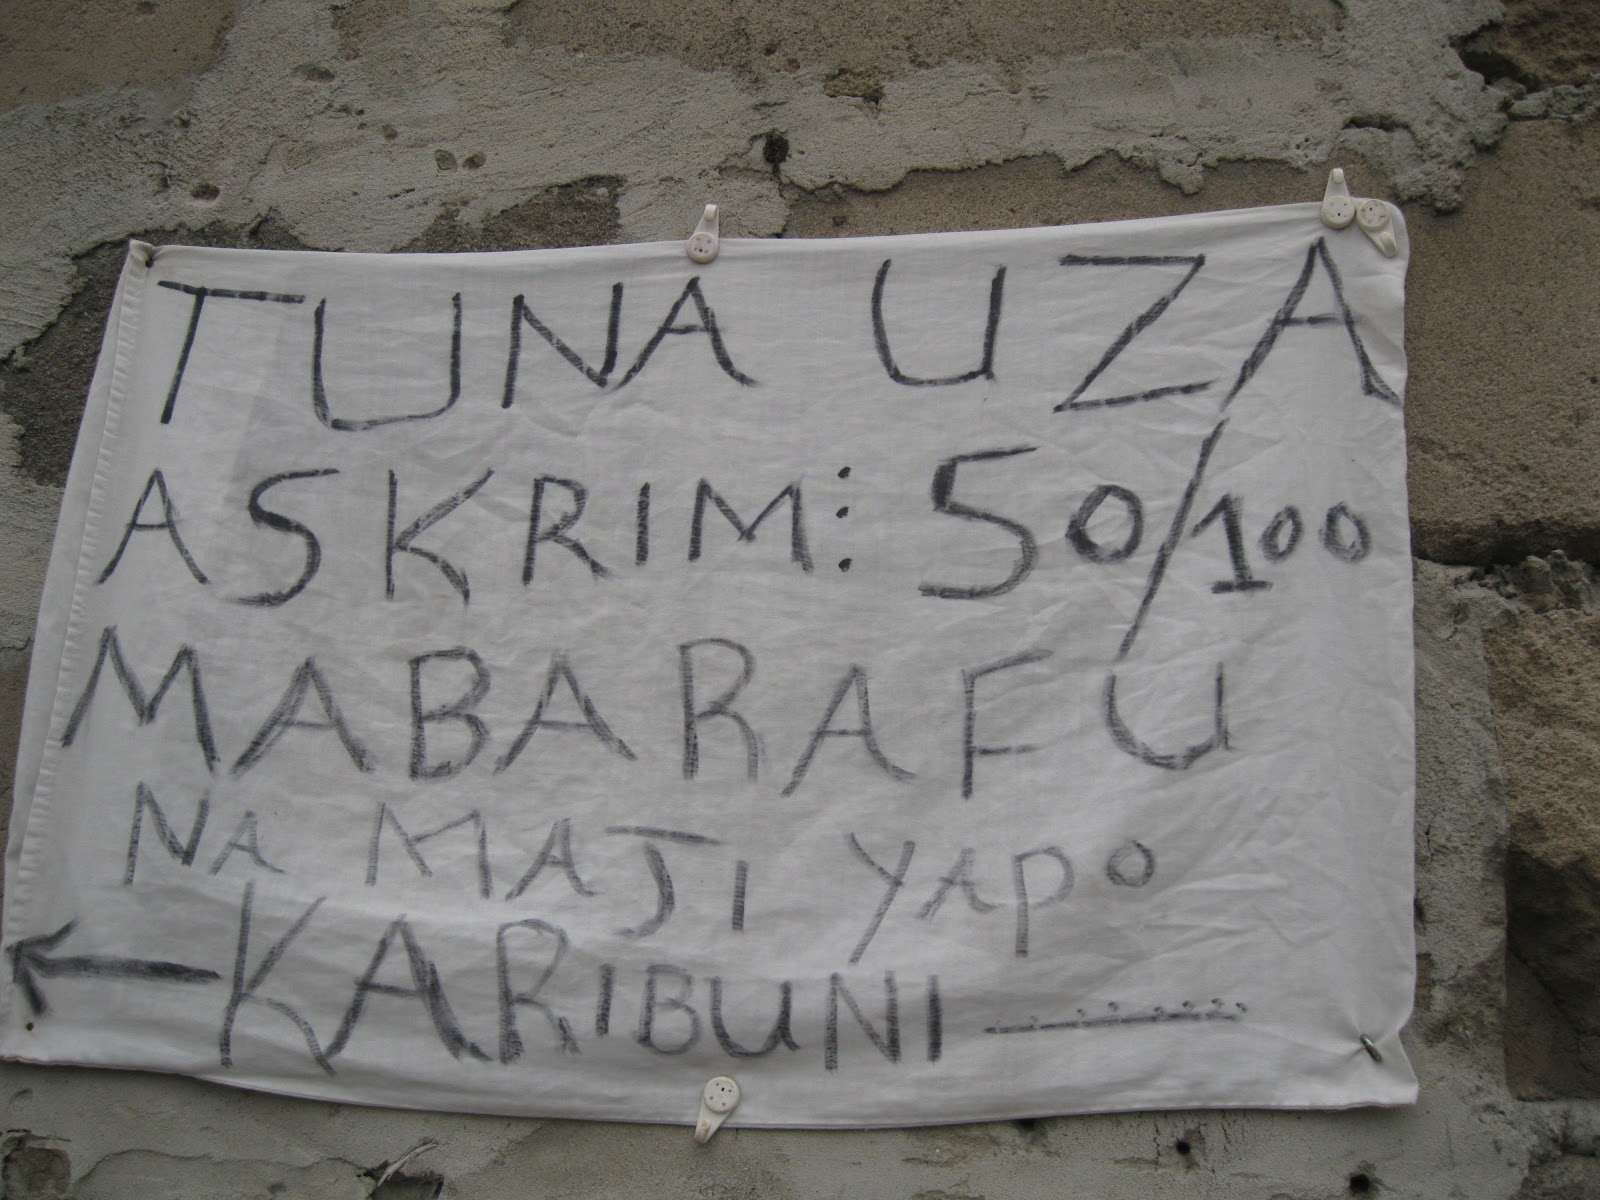 TUNA UZA
ASKRIM: 50/100
MABARAFU
NA MAJI YAPO
← KARIBUNI